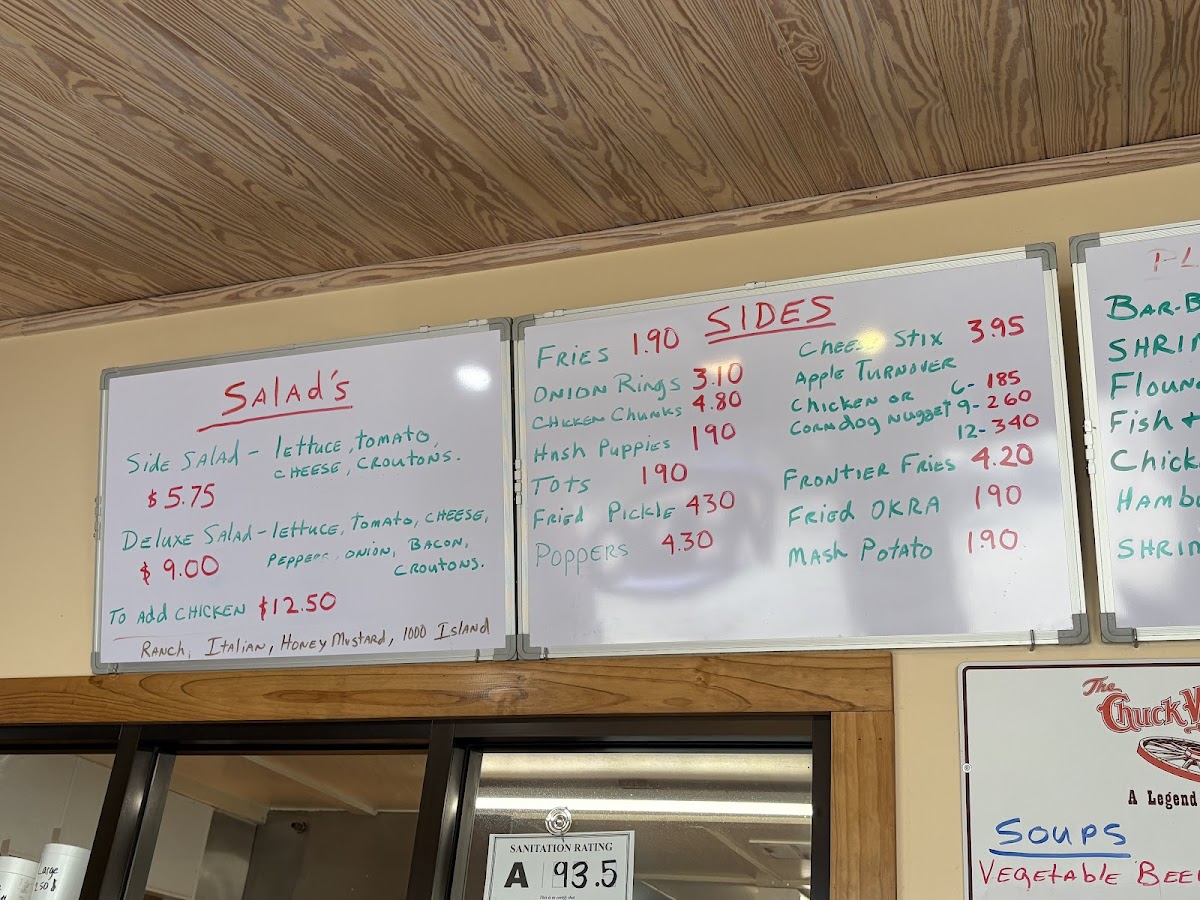 Salad's
Side Salad - lettuce, tomato,
cheese, croutons.
$5.75
Deluxe Salad - lettuce, tomato, cheese,
onion, Bacon,
croutons.
$9.00
To add chicken $12.50
Ranch, Italian, Honey Mustard, 1000 Island
SIDES
Fries 1.90
Onion Rings 3.10
Chicken Chunks 4.80
Hush Puppies 190
Tots 190
Fried Pickle 430
Poppers 4.30
Cheese Stix 3.95
Apple Turnover
Chicken or 6- 185
Corndog Nugget 9- 260
12- 340
Frontier Fries 4.20
Fried OKRA 190
Mash Potato 1.90
Bar-B
SHRIM
Floun
Fish +
Chick
Hambu
SHRIM
The
Chuck W
A Legend
Soups
Vegetable Bee
SANITATION RATING
A 93.5
Large